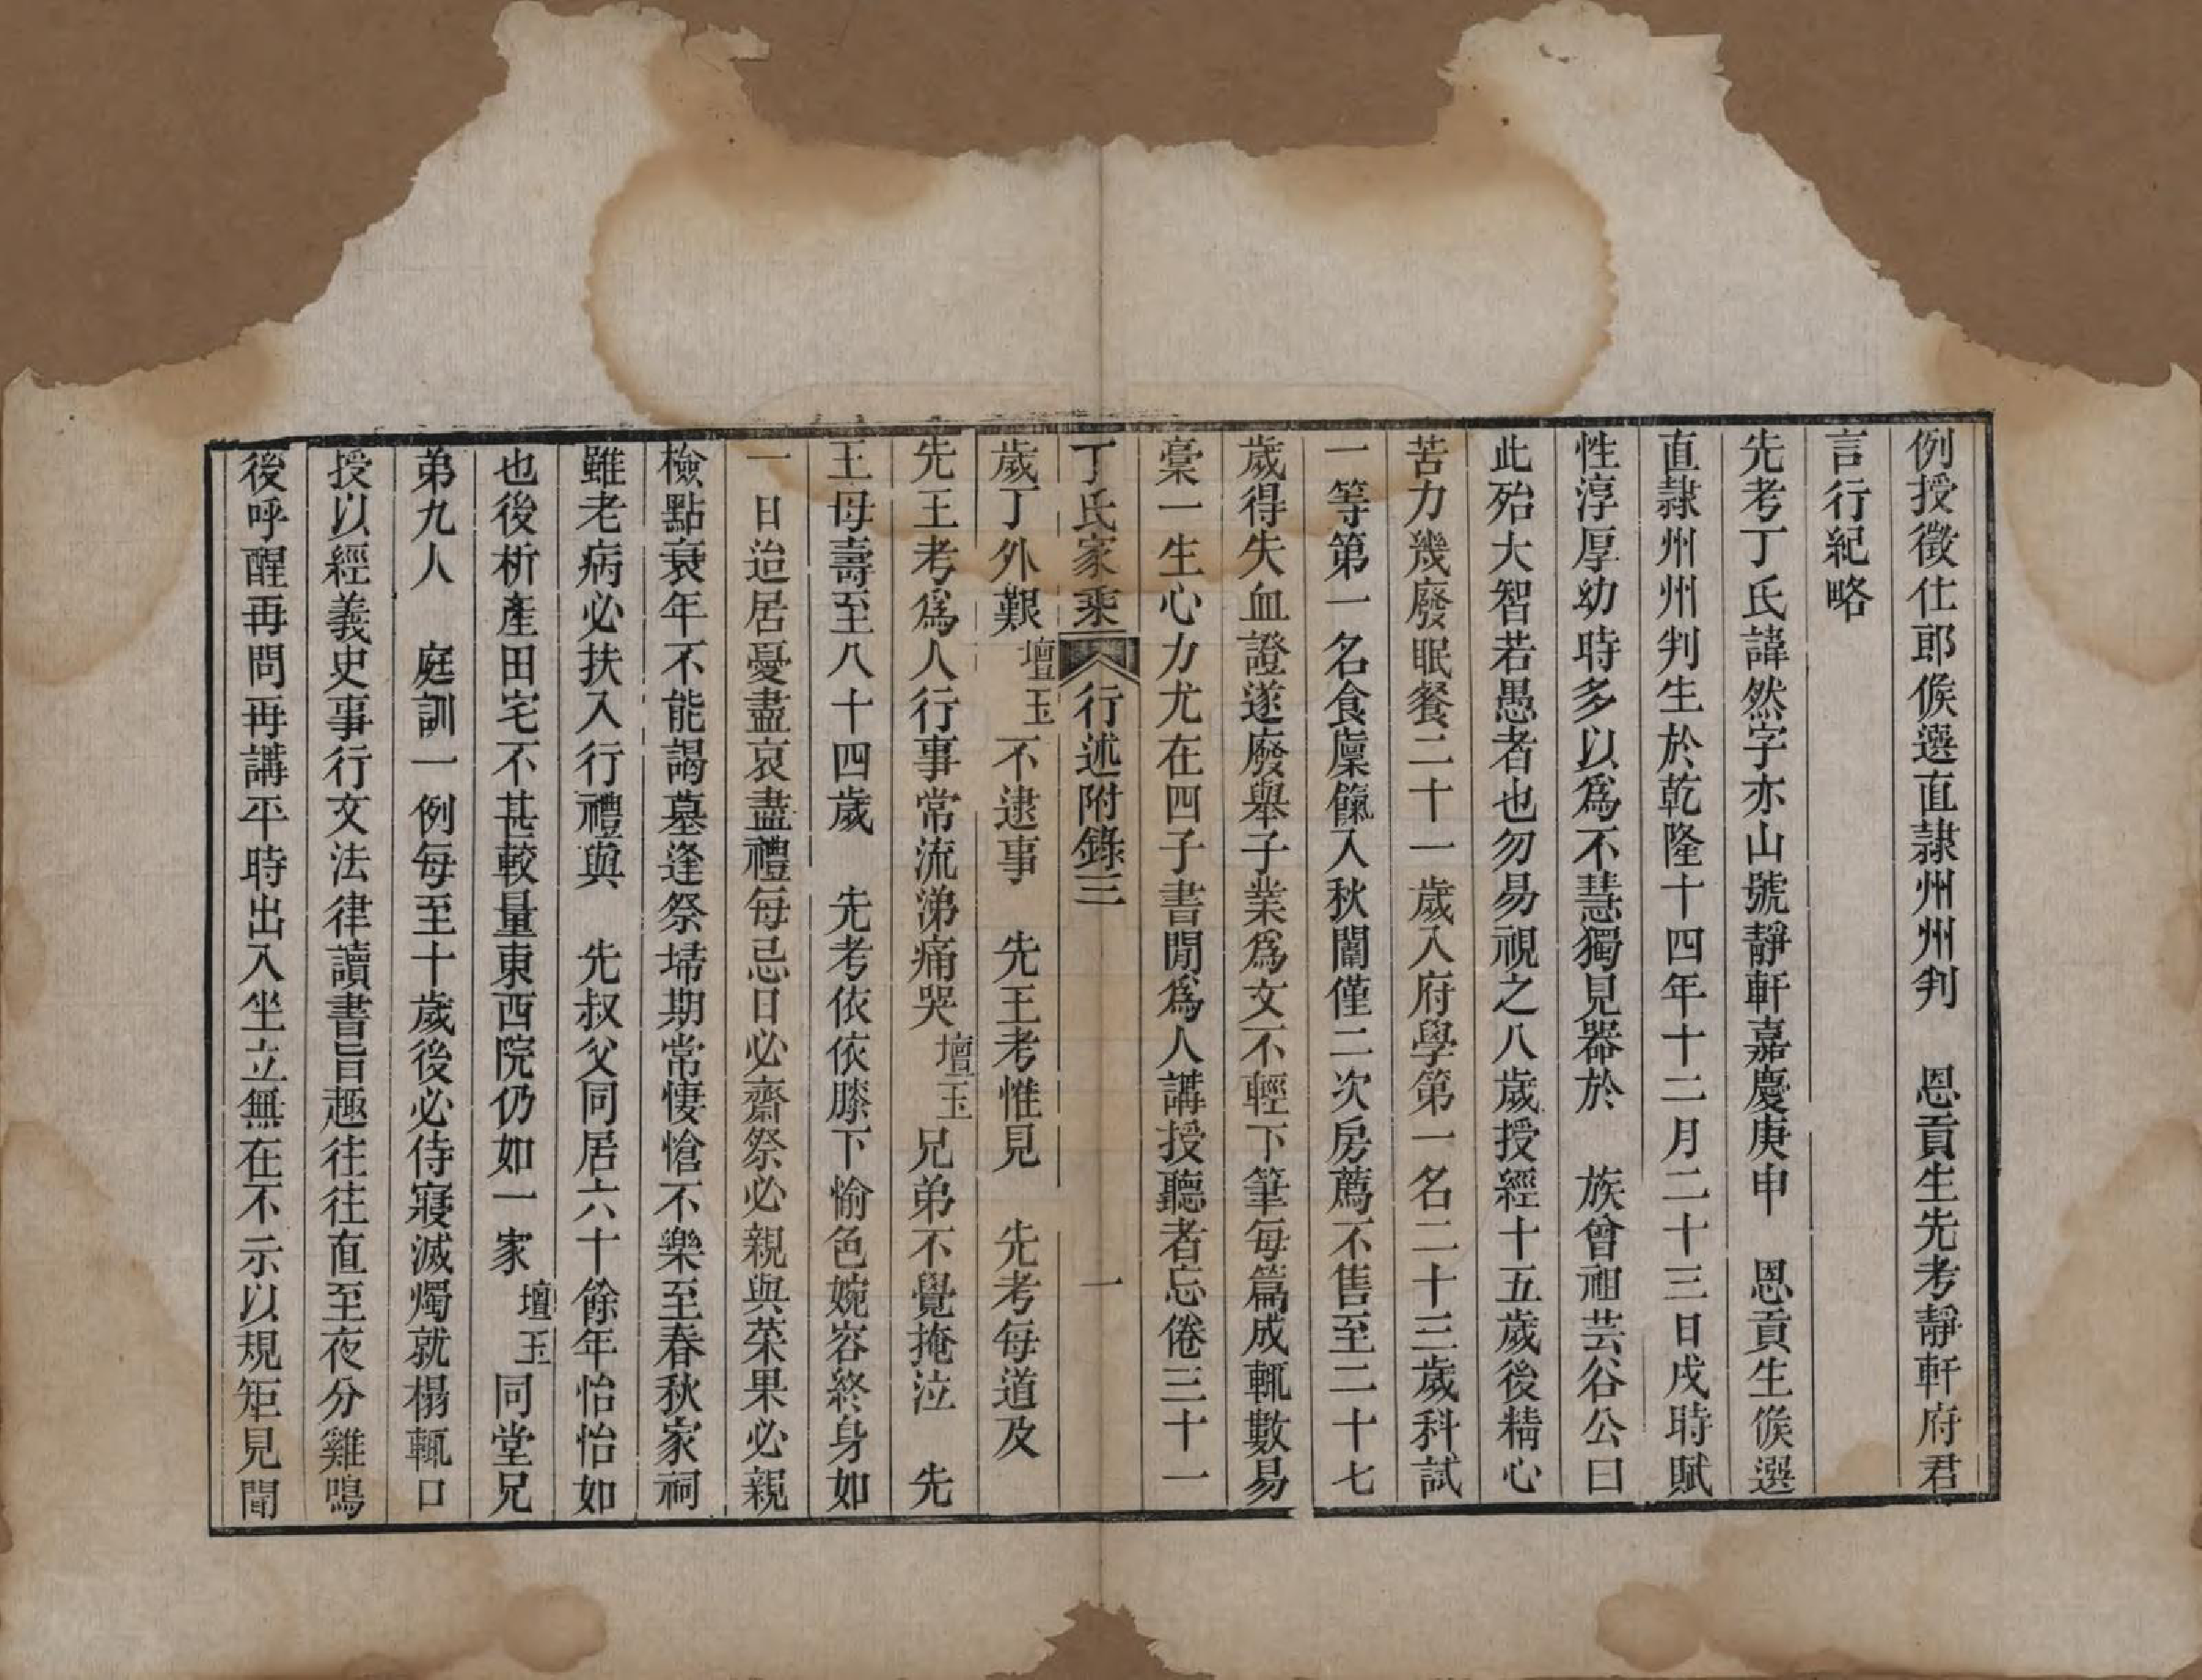 例授徵仕郎候選直隷州州判　恩貢生先考靜軒府君
言行紀略
先考丁氏諱然字亦山號靜軒嘉慶庚申　恩貢生候選
直隷州州判生於乾隆十四年十二月二十三日戌時賦
性淳厚幼時多以爲不慧獨見器於　族曾祖芸谷公曰
此殆大智若愚者也勿易視之八歲授經十五歲後精心
苦力幾廢眠餐二十一歲入府學第一名二十三歲科試
一等第一名食廩餼入秋闈僅二次房薦不售至二十七
歲得失血證遂廢舉子業爲文不輕下筆每篇成輒數易
稾一生心力尤在四子書閒爲人講授聽者忘倦三十一
丁氏家乘　行述附錄三　一
歲丁外艱壇玉不逮事　先王考惟見　先考每道及
先王考爲人行事常流涕痛哭壇玉兄弟不覺掩泣　先
王母壽至八十四歲　先考依依膝下愉色婉容終身如
一日治居憂盡哀盡禮每忌日必齋祭必親與菜果必親
檢點衰年不能謁墓逢祭埽期常悽愴不樂至春秋家祠
雖老病必扶入行禮與　先叔父同居六十餘年怡怡如
也後析產田宅不甚較量東西院仍如一家壇玉同堂兄
弟九人　庭訓一例每至十歲後必侍寢滅燭就榻輒口
授以經義史事行文法律讀書旨趣往往直至夜分雞鳴
後呼醒再問再講平時出入坐立無在不示以規矩見聞